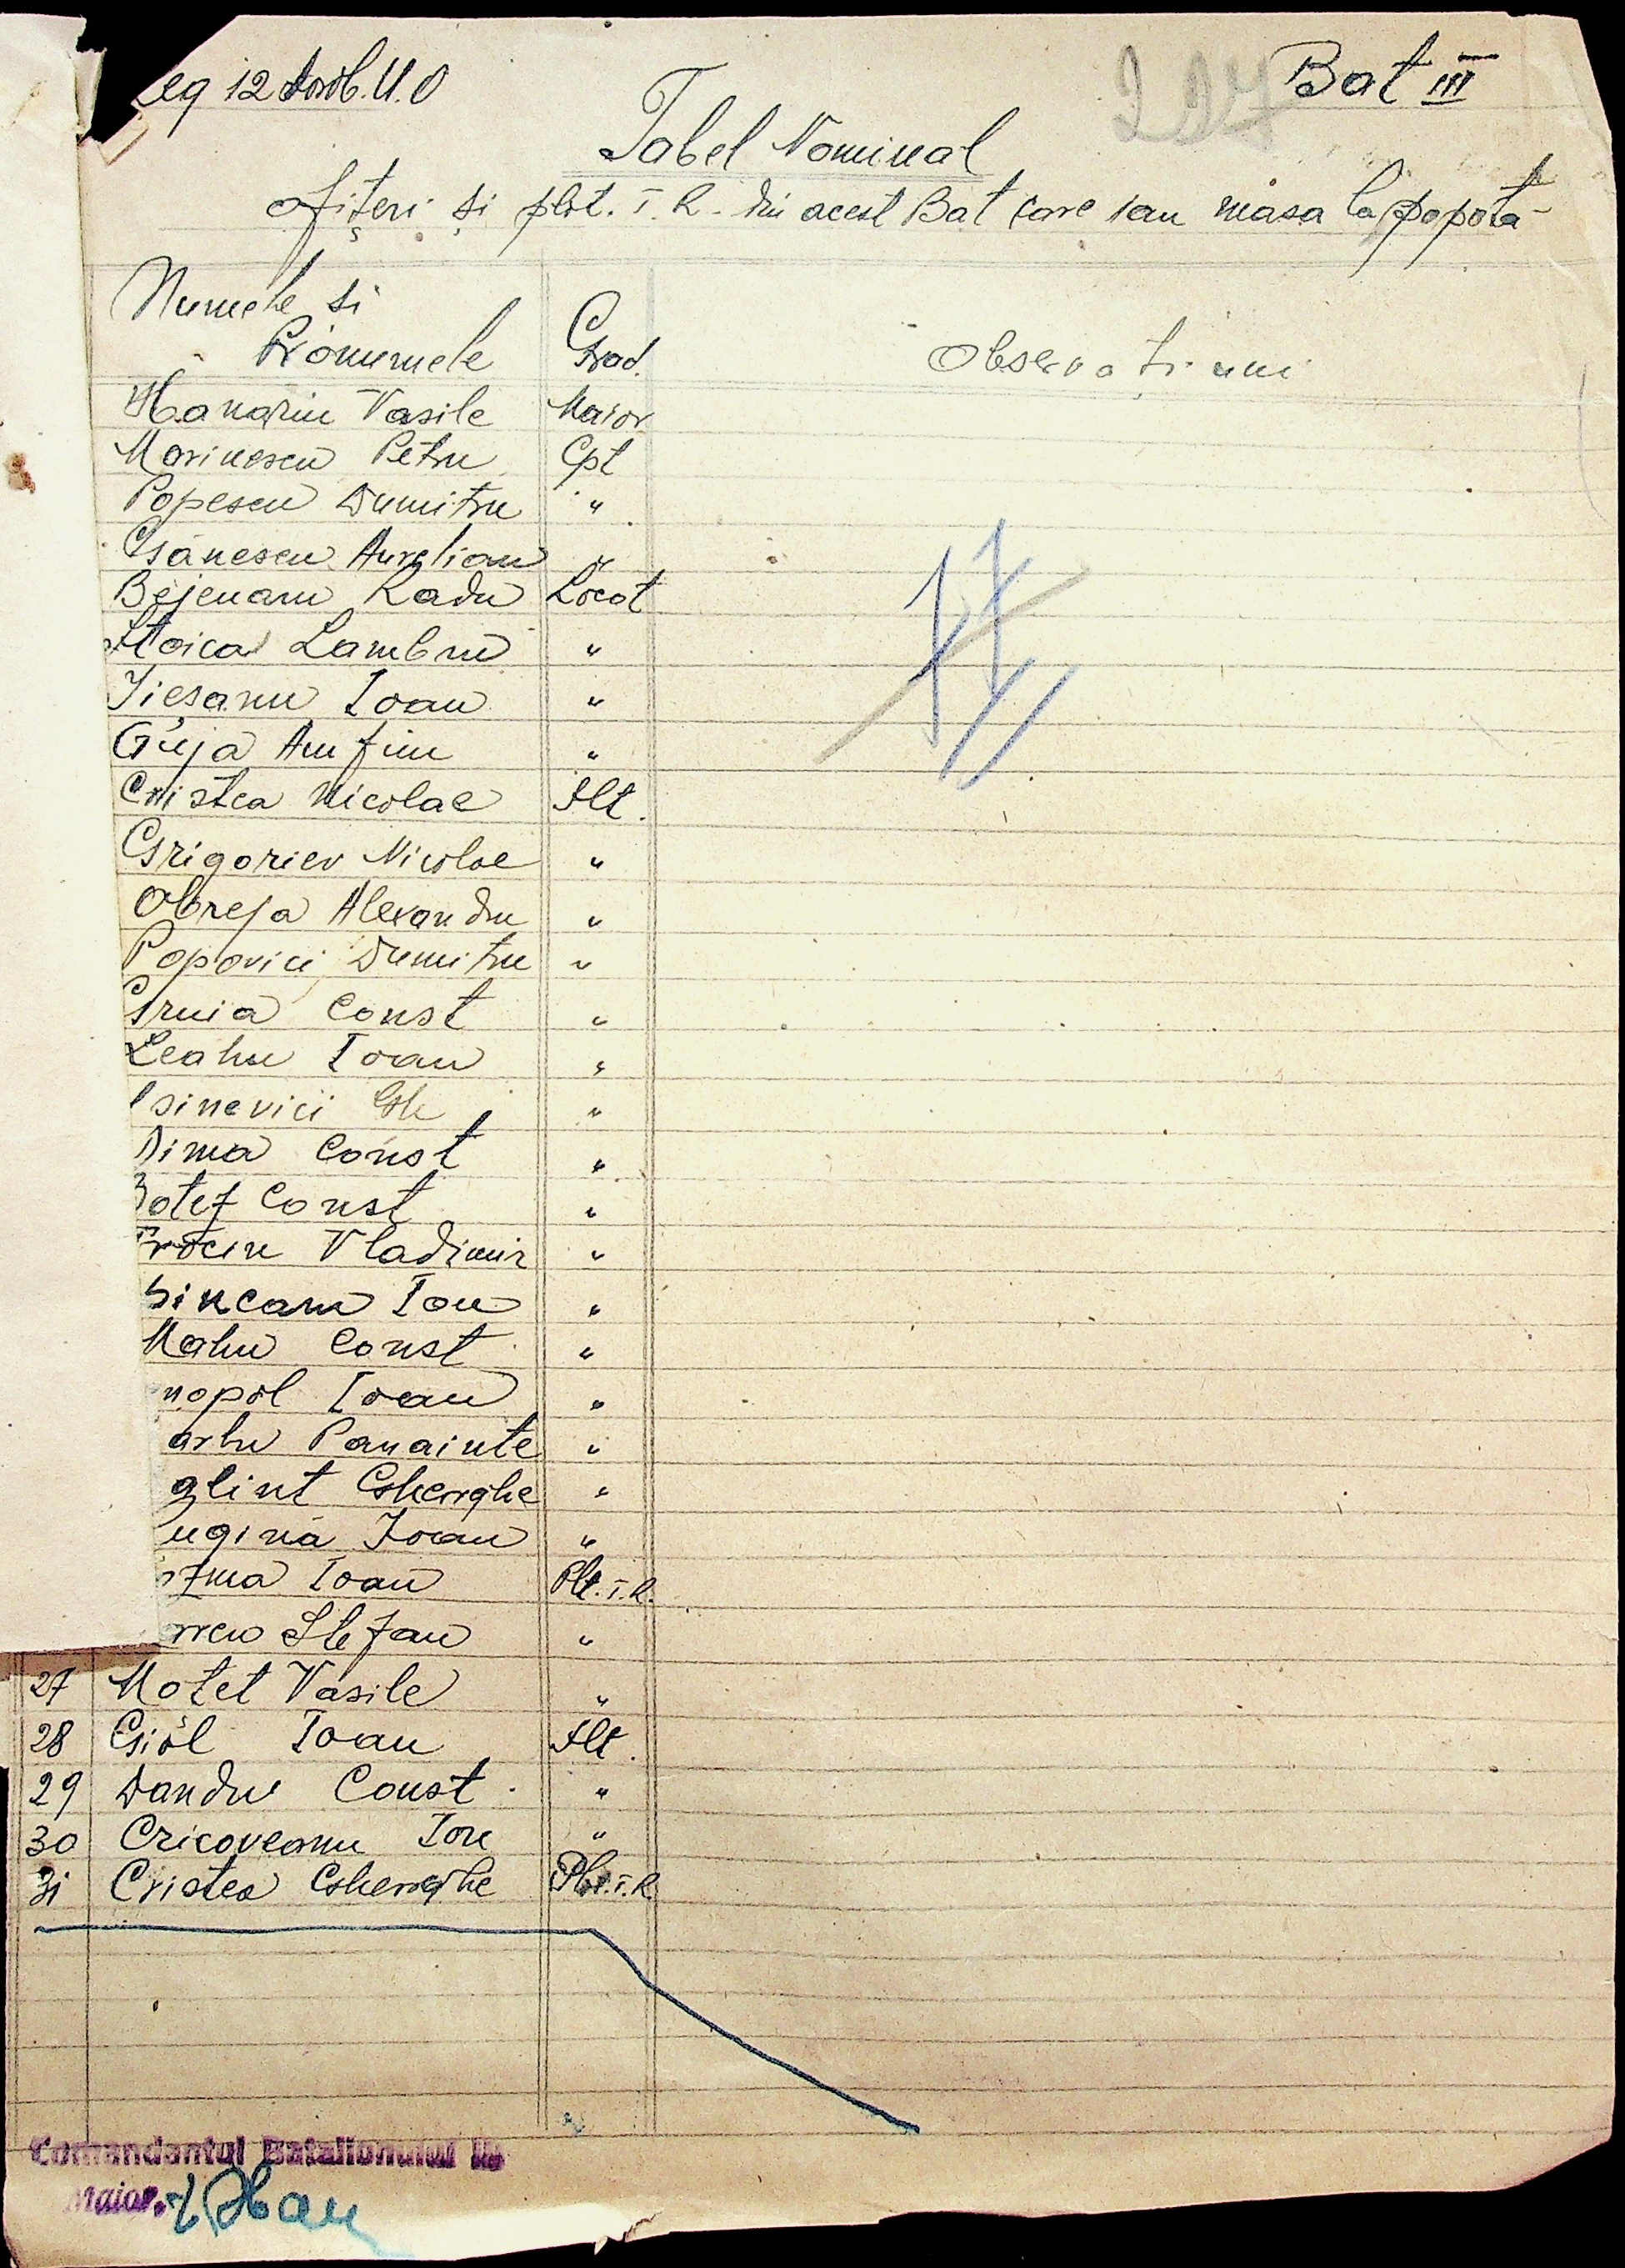 eg 12 Dorob. U.O
Bat III
Tabel Nominal
ofițeri și plot. T.R. din acest Bat care iau masa la popotă
Numele si Grad. Observațiuni
Pronumele
Hanariu Vasile Maior
Marinescu Petru Cpt
Popescu Dumitru "
Gsănescu Aurelian "
Bejenaru Radu Locot
Stoica Lambru "
Jiesanu Ioan "
Guja Anfim "
Cristea Nicolae Slt.
Grigoriev Nicolae "
Obreja Alexandru "
Popovici Dumitru "
Gruia Const "
Leahu Ioan "
sinevici Gh "
Dima Const "
Botez Const "
Vladimir "
sincaru Ion "
Mahu Const "
nopol Ioan "
arhu Panainte "
glint Gherghe "
ugină Ioan "
zma Ioan Plt. T.R.
Stefan "
27 Motet Vasile "
28 Giol Ioan Slt.
29 Dandu Const. "
30 Cricoveanu Ion "
31 Cristea Gherghe Plt. T.R.
Comandantul Batalionului III
Maior,